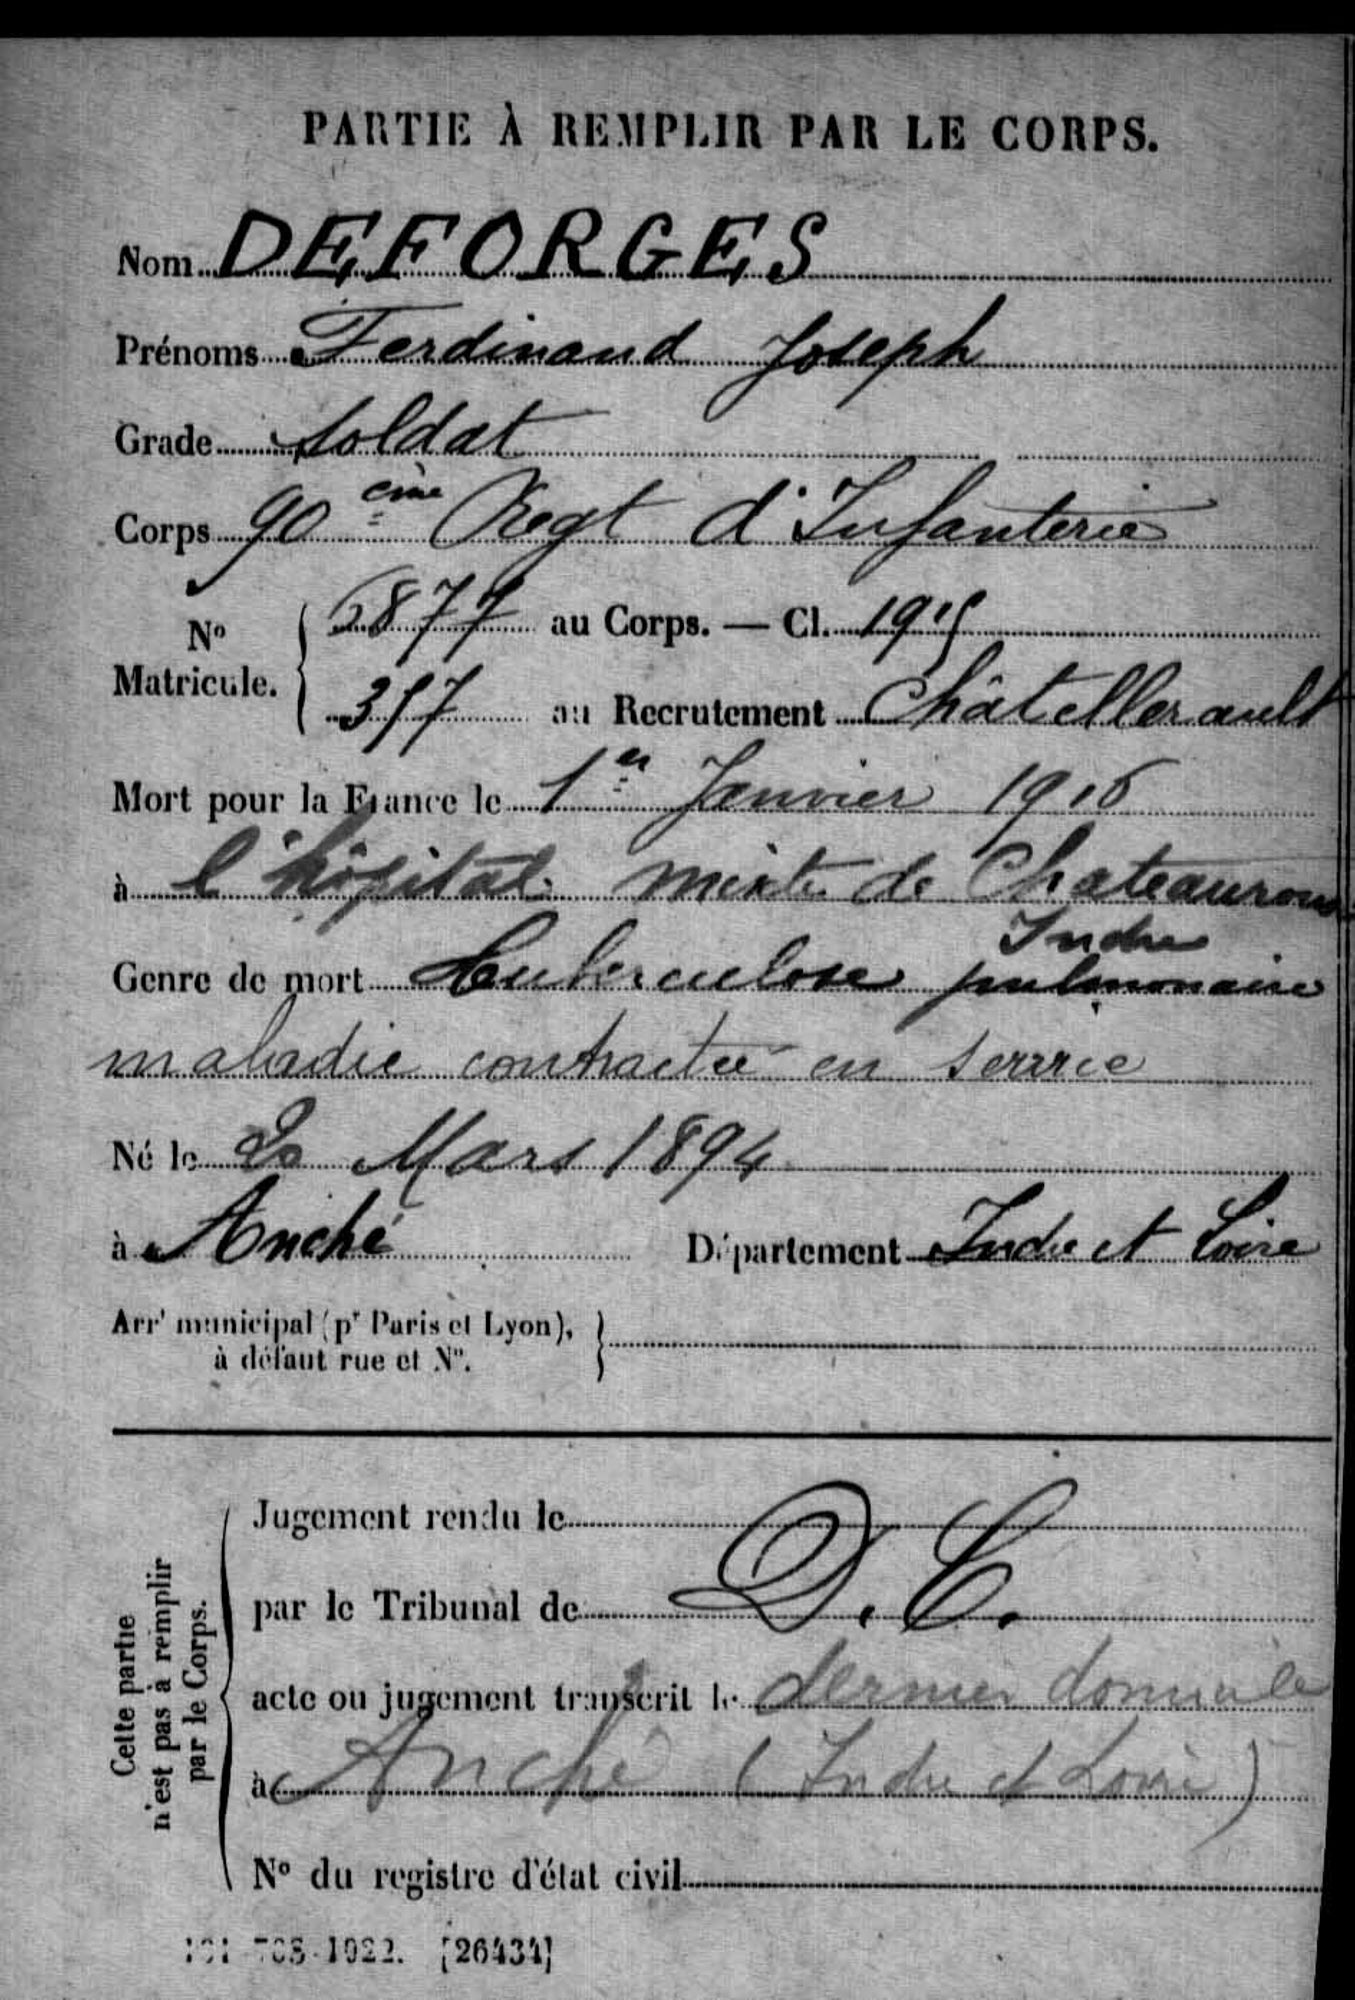 PARTIE À REMPLIR PAR LE CORPS.
Nom DEFORGES
Prénoms Ferdinand Joseph
Grade soldat
Corps 90 ème Regt d'Infanterie
No Matricule. { 6877 au Corps. — Cl. 1915
357 au Recrutement Châtellerault
Mort pour la France le 1er Janvier 1916
à l'hôpital mixte de Chateauroux
Indre
Genre de mort tuberculose pulmonaire
maladie contractée en service
Né le 20 Mars 1894
à Anché Département Indre et Loire
Arrt municipal (pr Paris et Lyon), }
à défaut rue et No.
Cette partie
n'est pas à remplir
par le Corps.
Jugement rendu le
par le Tribunal de D. C.
acte ou jugement transcrit le dernier domicile
à Anché (Indre et Loire)
No du registre d'état civil
708-1922. [26434]